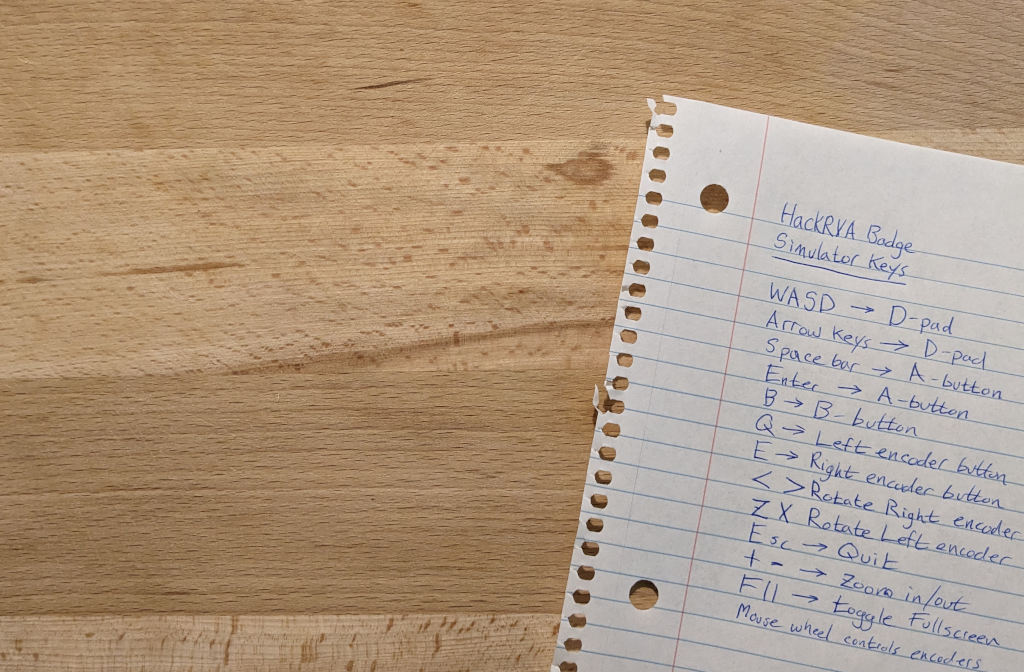 HackRVA Badge
Simulator Keys
WASD → D-pad
Arrow Keys → D-pad
Space bar → A-button
Enter → A-button
B → B-button
Q → Left encoder button
E → Right encoder button
< > Rotate Right encoder
Z X Rotate Left encoder
Esc → Quit
+ - → Zoom in/out
F11 → toggle Fullscreen
Mouse wheel controls encoders